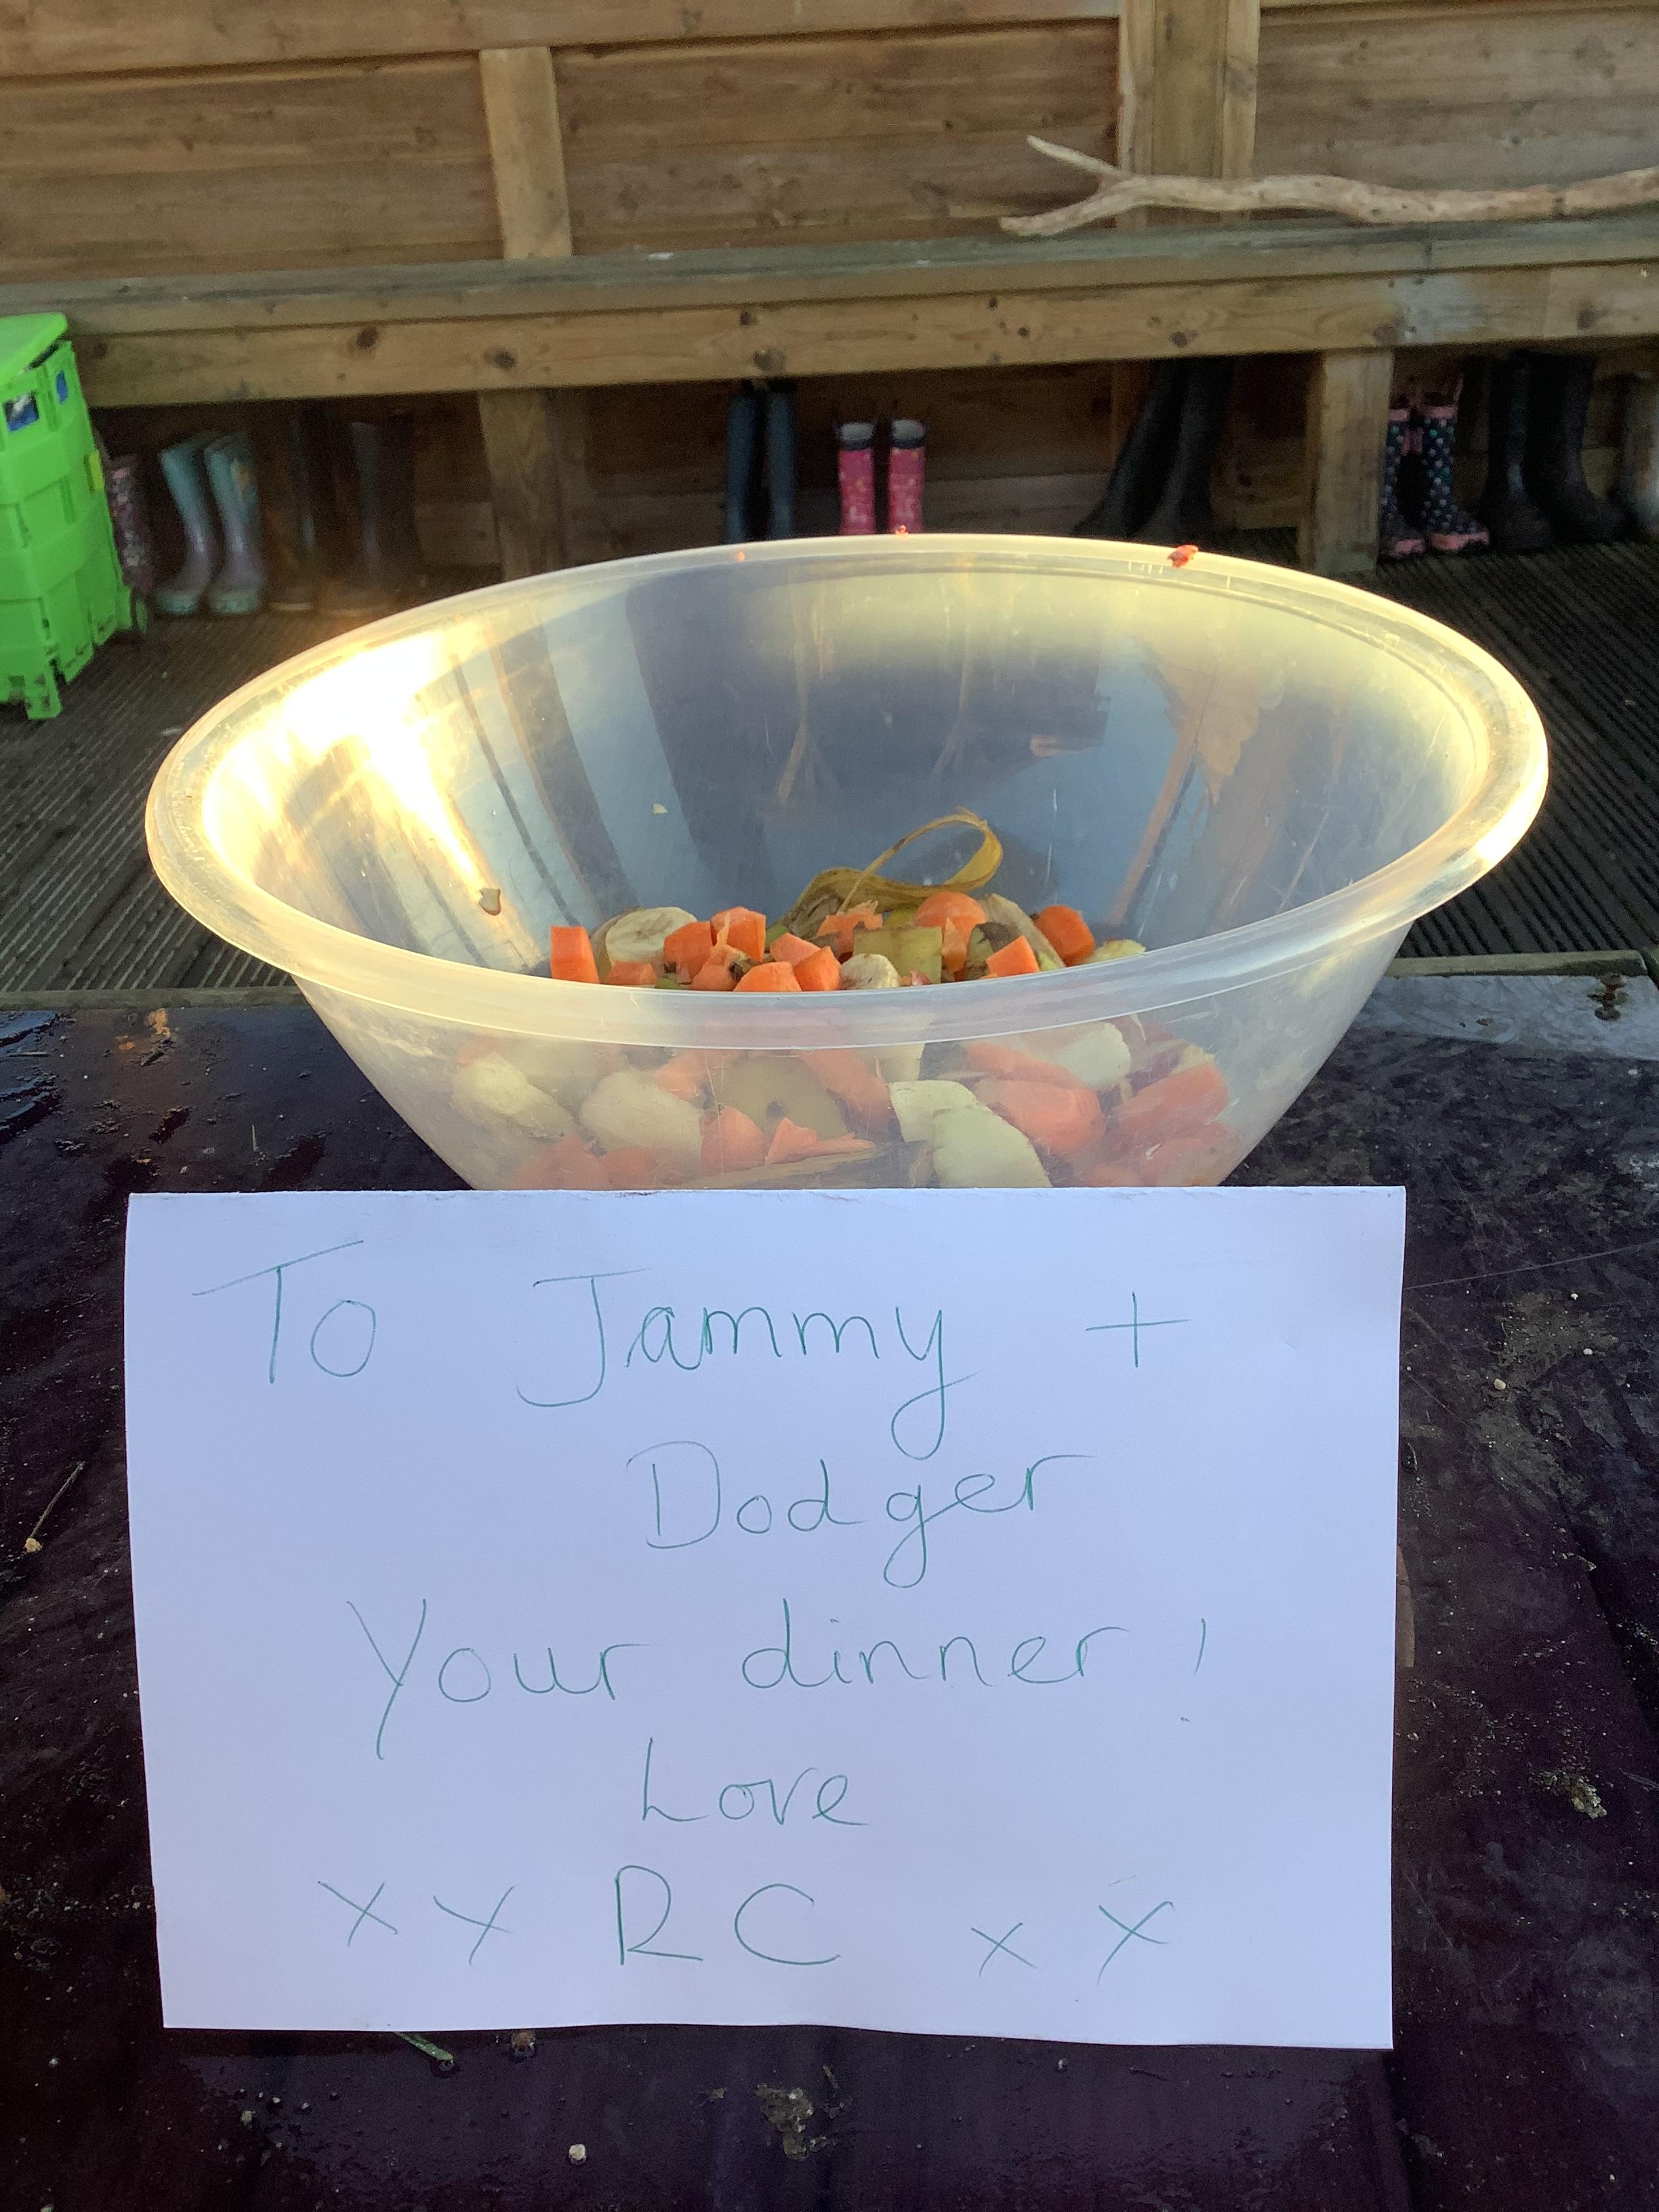 To Jammy +
Dodger
Your dinner!
Love
x x RC x x